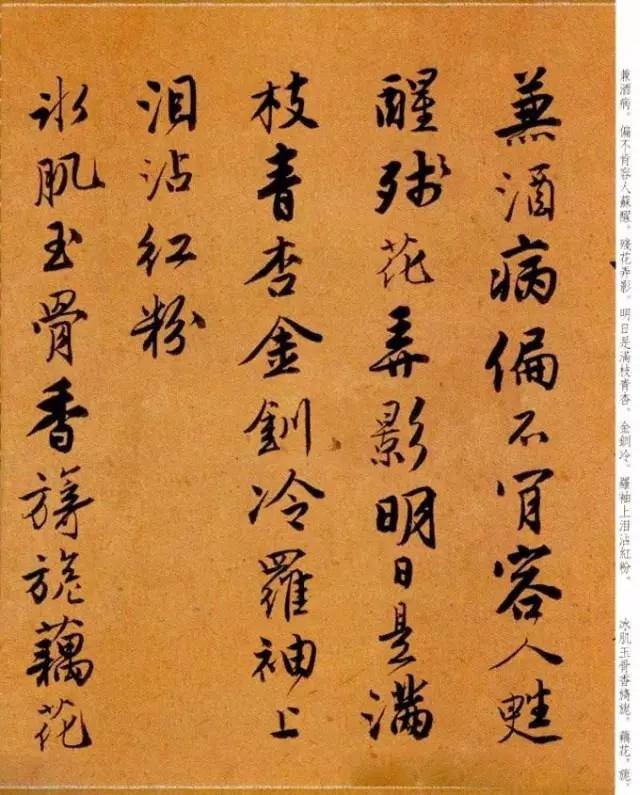 蒹酒病偏不肯容人甦
醒残花弄影明日是满
枝青杏金釧冷羅袖上
泪沾红粉
冰肌玉骨香旖旎藕花
兼酒病。偏不肯容人蘇醒。殘花弄影。明日是滿枝青杏。金釧冷。羅袖上泪沾紅粉。
冰肌玉骨香旖旎。藕花。旎。